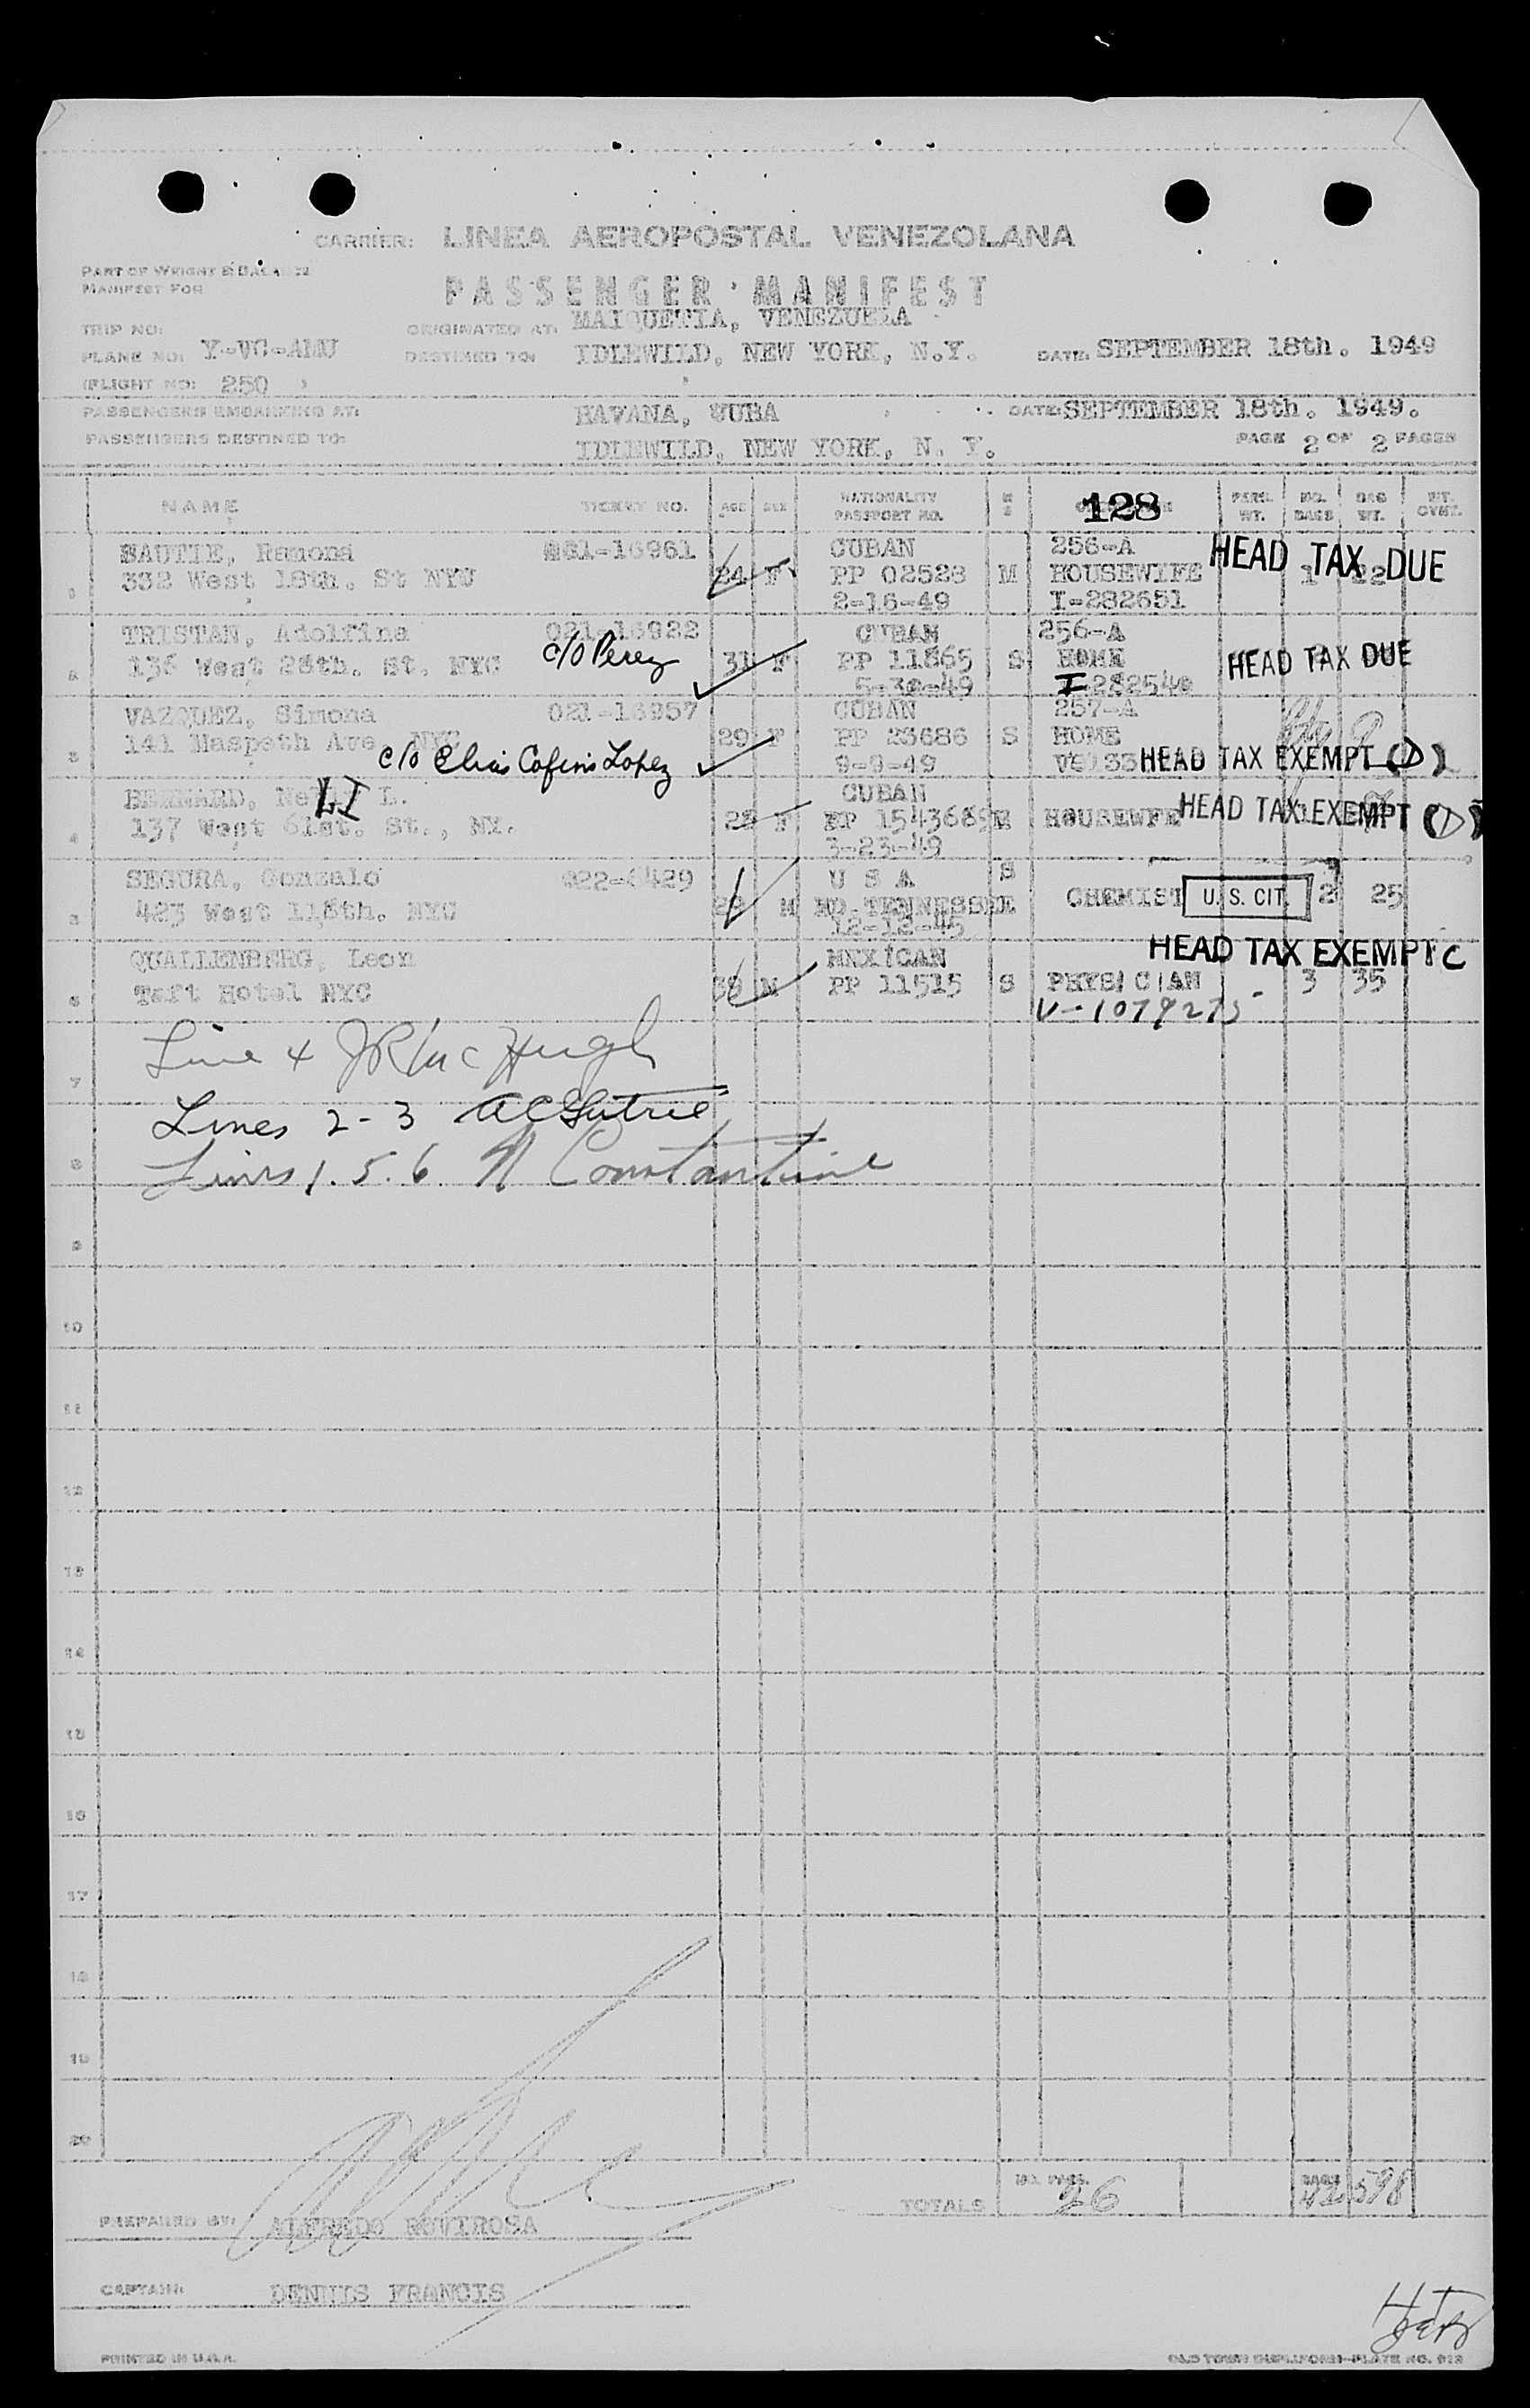 CARRIER: LINEA AEROPOSTAL VENEZOLANA
PART OF WEIGHT & BALANCE
MANIFEST FOR
PASSENGER MANIFEST
TRIP NO:
ORIGINATED AT: MAIQUETIA, VENEZUELA
PLANE NO: Y-VC-AMU
DESTINED TO: IDLEWILD, NEW YORK, N.Y.
DATE: SEPTEMBER 18th. 1949
(FLIGHT NO: 250 )
PASSENGERS EMBARKING AT: HAVANA, CUBA
DATE: SEPTEMBER 18th. 1949.
PASSENGERS DESTINED TO: IDLEWILD, NEW YORK, N. Y.
PAGE 2 OF 2 PAGES
NAME TICKET NO. AGE SEX NATIONALITY PASSPORT NO. M S 128 PERS. WT. NO. BAGS BAG WT.
Ramona 021-16961 CUBAN 256-A
1 392 West 18th. St NYC 24 F PP 02528 M HOUSEWIFE HEAD TAX DUE 1 12
2-16-49 I-282651
TRISTAN, Adolfina 021-16922 CUBAN 256-A
2 136 West 28th. St. NYC c/o Perez 31 F PP 11865 S HOME HEAD TAX DUE
5-30-49 I-282540
VAZQUEZ, Simona 021-16957 CUBAN 257-A
3 141 Maspeth Ave. NYC 29 F PP 23686 S HOME
c/o Elias Lopez 9-9-49 HEAD TAX EXEMPT (D)
LI
BERNARD, L. CUBAN
4 137 West 61st. St., NY. 28 F PP HOUSEWFE HEAD TAX EXEMPT (D)
3-23-49
SEGURA, Gonzalo 022-6429 U S A S
5 423 West 118th. NYC 29 M NO. TENNESSEE CHEMIST U.S. CIT. 2 25
12-12-45
QUALLENBERG, Leon MEXICAN HEAD TAX EXEMPT C
6 Taft Hotel NYC 39 M PP 11515 S PHYSICIAN 3 35
V-1079275
Line 4 JR McHugh
7
Lines 2-3 AC Gutrie
8
Lines 1. 5. 6. N Constantine
9
10
11
12
13
14
15
16
17
18
19
20
TOTALS NO. PASS. 26 BAGS 42 598
PREPARED BY: ALFREDO ROVIROSA
CAPTAIN: DENNIS FRANCIS
PRINTED IN U.S.A.
OLD TOWN DUPLIFORM—PLATE NO. 913